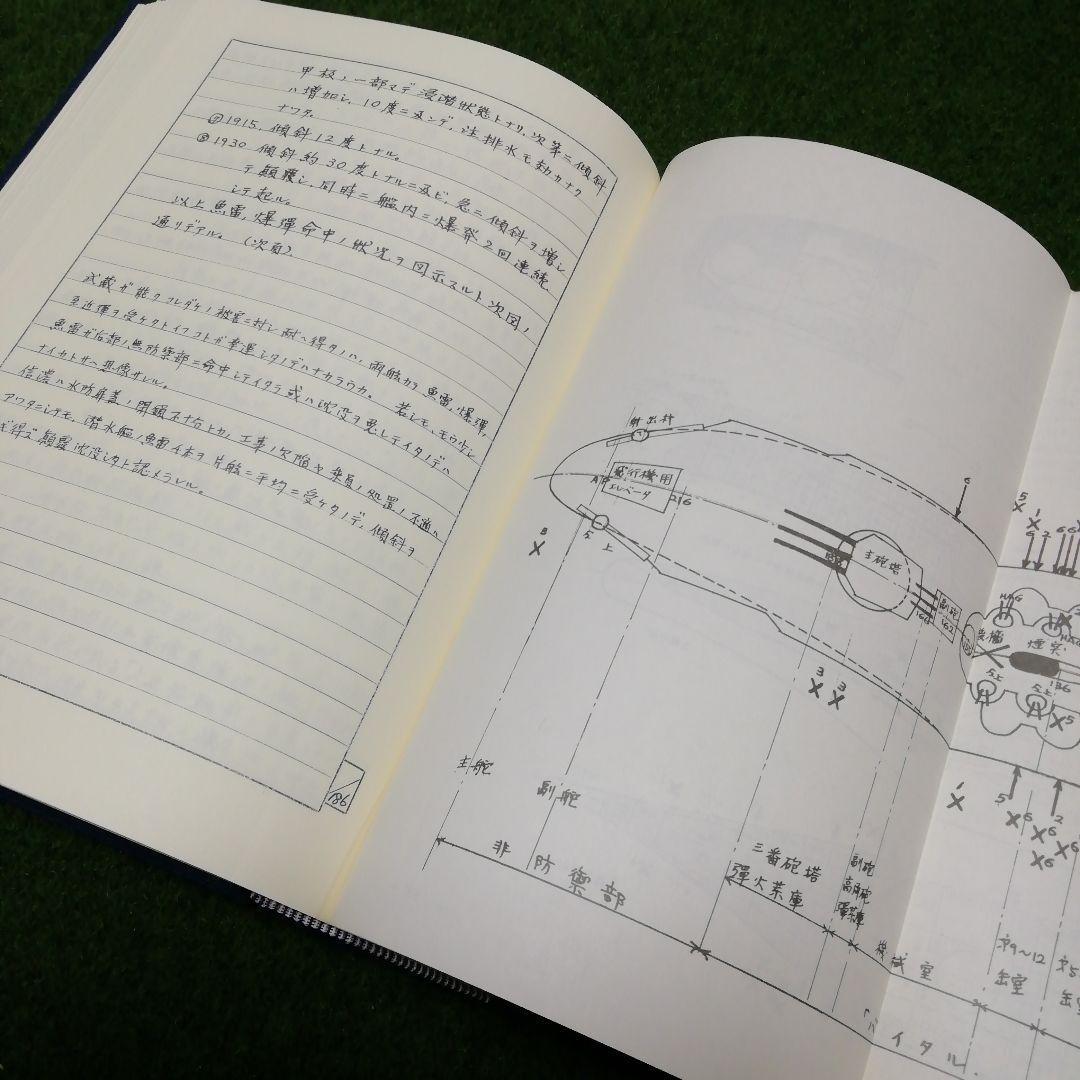 甲板ノ一部マデ浸潜状態トナリ、次第ニ傾斜
ハ増加シ、10度ニ及ンデ、注排水モ効カナク
ナツタ。
⑦1915、傾斜12度トナル。
⑧1930 傾斜約30度トナルニ及ビ、急ニ傾斜ヲ増シ
テ顛覆シ、同時ニ艦内ニ爆発2回連続
シテ起ル。
以上魚雷、爆弾命中ノ状況ヲ図示スルト次図ノ
通リデアル。(次頁)
武蔵ガ能クコレダケノ被害ニ対シ耐ヘ得タノハ、両舷カラ魚雷、爆弾、
至近弾ヲ受ケタトイフコトガ幸運シタノデハナカラウカ。 若シモ、モウ少シ
魚雷ガ后部ノ無防禦部ニ命中シテイタラ或ハ沈没ヲ免レテイタノデハ
ナイカトサヘ想像サレル。
信濃ハ水防扉蓋ノ閉鎖不十分トカ、工事ノ欠陥ヤ乗員ノ処置ノ不適ハ
アツタニシテモ、潜水艦ノ魚雷4本ヲ片舷ニ平均ニ受ケタノデ、傾斜ヲ
得ズ顛覆沈没シタト認メラレル。
186
射出機
飛行機用
エレベータ
AP
216
6
8
X
5上
主砲塔
副砲
160
162
5
X
1
X
6 2
HAG
後檣
煙突
136
HAG
5上
5上
X5
3 3
X X
1
X
5
X6
X6
2
X6
X6
主舵
副舵
非防禦部
三番砲塔
弾火薬庫
副砲
高角砲
弾薬庫
機械室
カ9~12
缶室
カ5
缶室
バイタル.